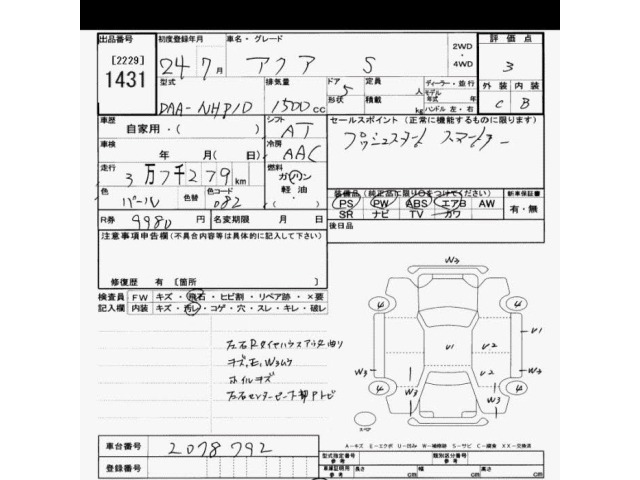 出品番号 初度登録年月 車名・グレード 2WD ・ 4WD 評価点
[2229]
1431
24年7月 アクア S 3
型式 排気量 ドア 5 定員 人 ディーラー・並行
DAA-NHP10 1500cc 形状 積載 kg モデル年式 年 ハンドル 左・右
外装 内装
C B
車歴 シフト セールスポイント (正常に機能するものに限ります)
自家用・( ) AT プッシュスタート スマートキー
車検 冷房
年 月 日( ) AAC
走行 燃料
3万7千279km ガソリン 軽油 ・( )
色 色替 色コード
パール 082
装備品 (純正品に限り○をつけてください) 新車保証書
PS PW ABS エアB AW 有・無
SR ナビ TV カワ
R券 9980円 名変期限 月 日 後日品
注意事項申告欄(不具合内容等は具体的に記入して下さい)
修復歴 有 [箇所 ]
検査員 FW キズ・飛石・ヒビ割・リペア跡・×要
記入欄 内装 キズ・汚レ・コゲ・穴・スレ・キレ・破レ
キズ、E、W3ムケ
ホイルキズ
W3
4 4
U1 U2 U1
W3 U2 W3
W3 W3
4 4
スペア
A-キズ E-エクボ U-凹み W-補修跡 S-サビ C-腐食 XX-交換済
車台番号 2078792 型式指定番号 参考 類別区分番号 参考
登録番号 車庫証明用 参考 長さ cm 幅 cm 高さ cm